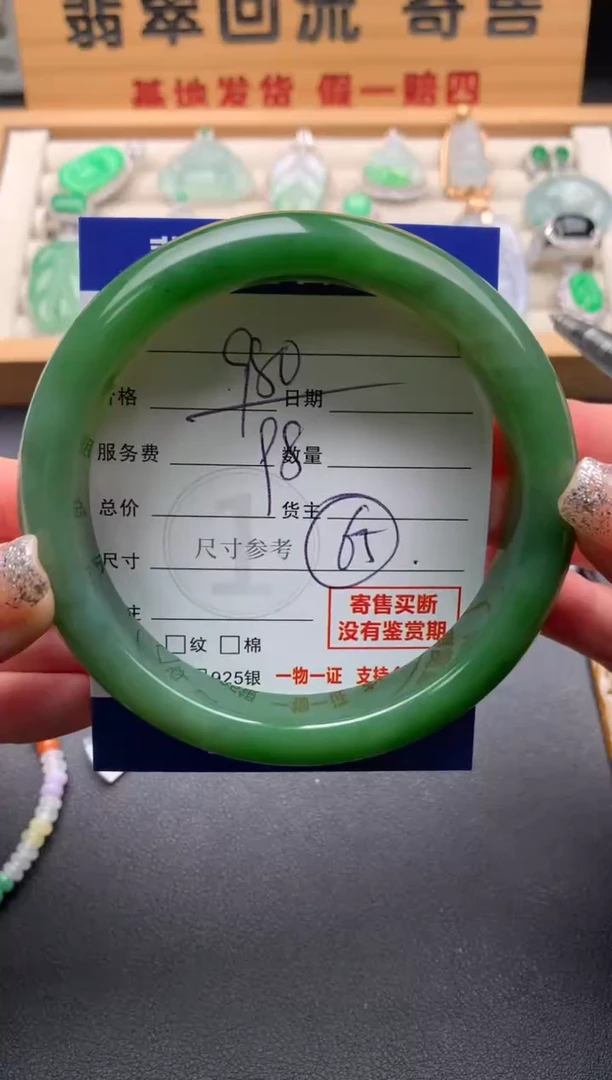 翡翠回流 寄售
基地发货 假一赔四
980
价格 日期
98
服务费 数量
总价 货主
尺寸 尺寸参考 65
寄售买断
没有鉴赏期
纹 棉
925银 一物一证 支持